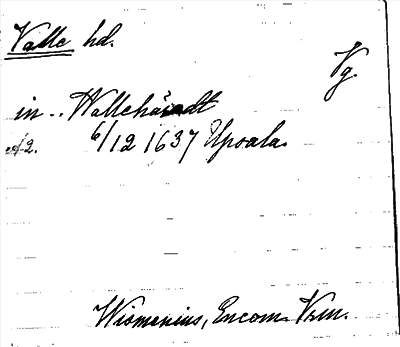 Valle hd.
Vg.
in .. Wallehäradt
6/12 1637 Upsala.
Wismenius, Encom. Vrm.